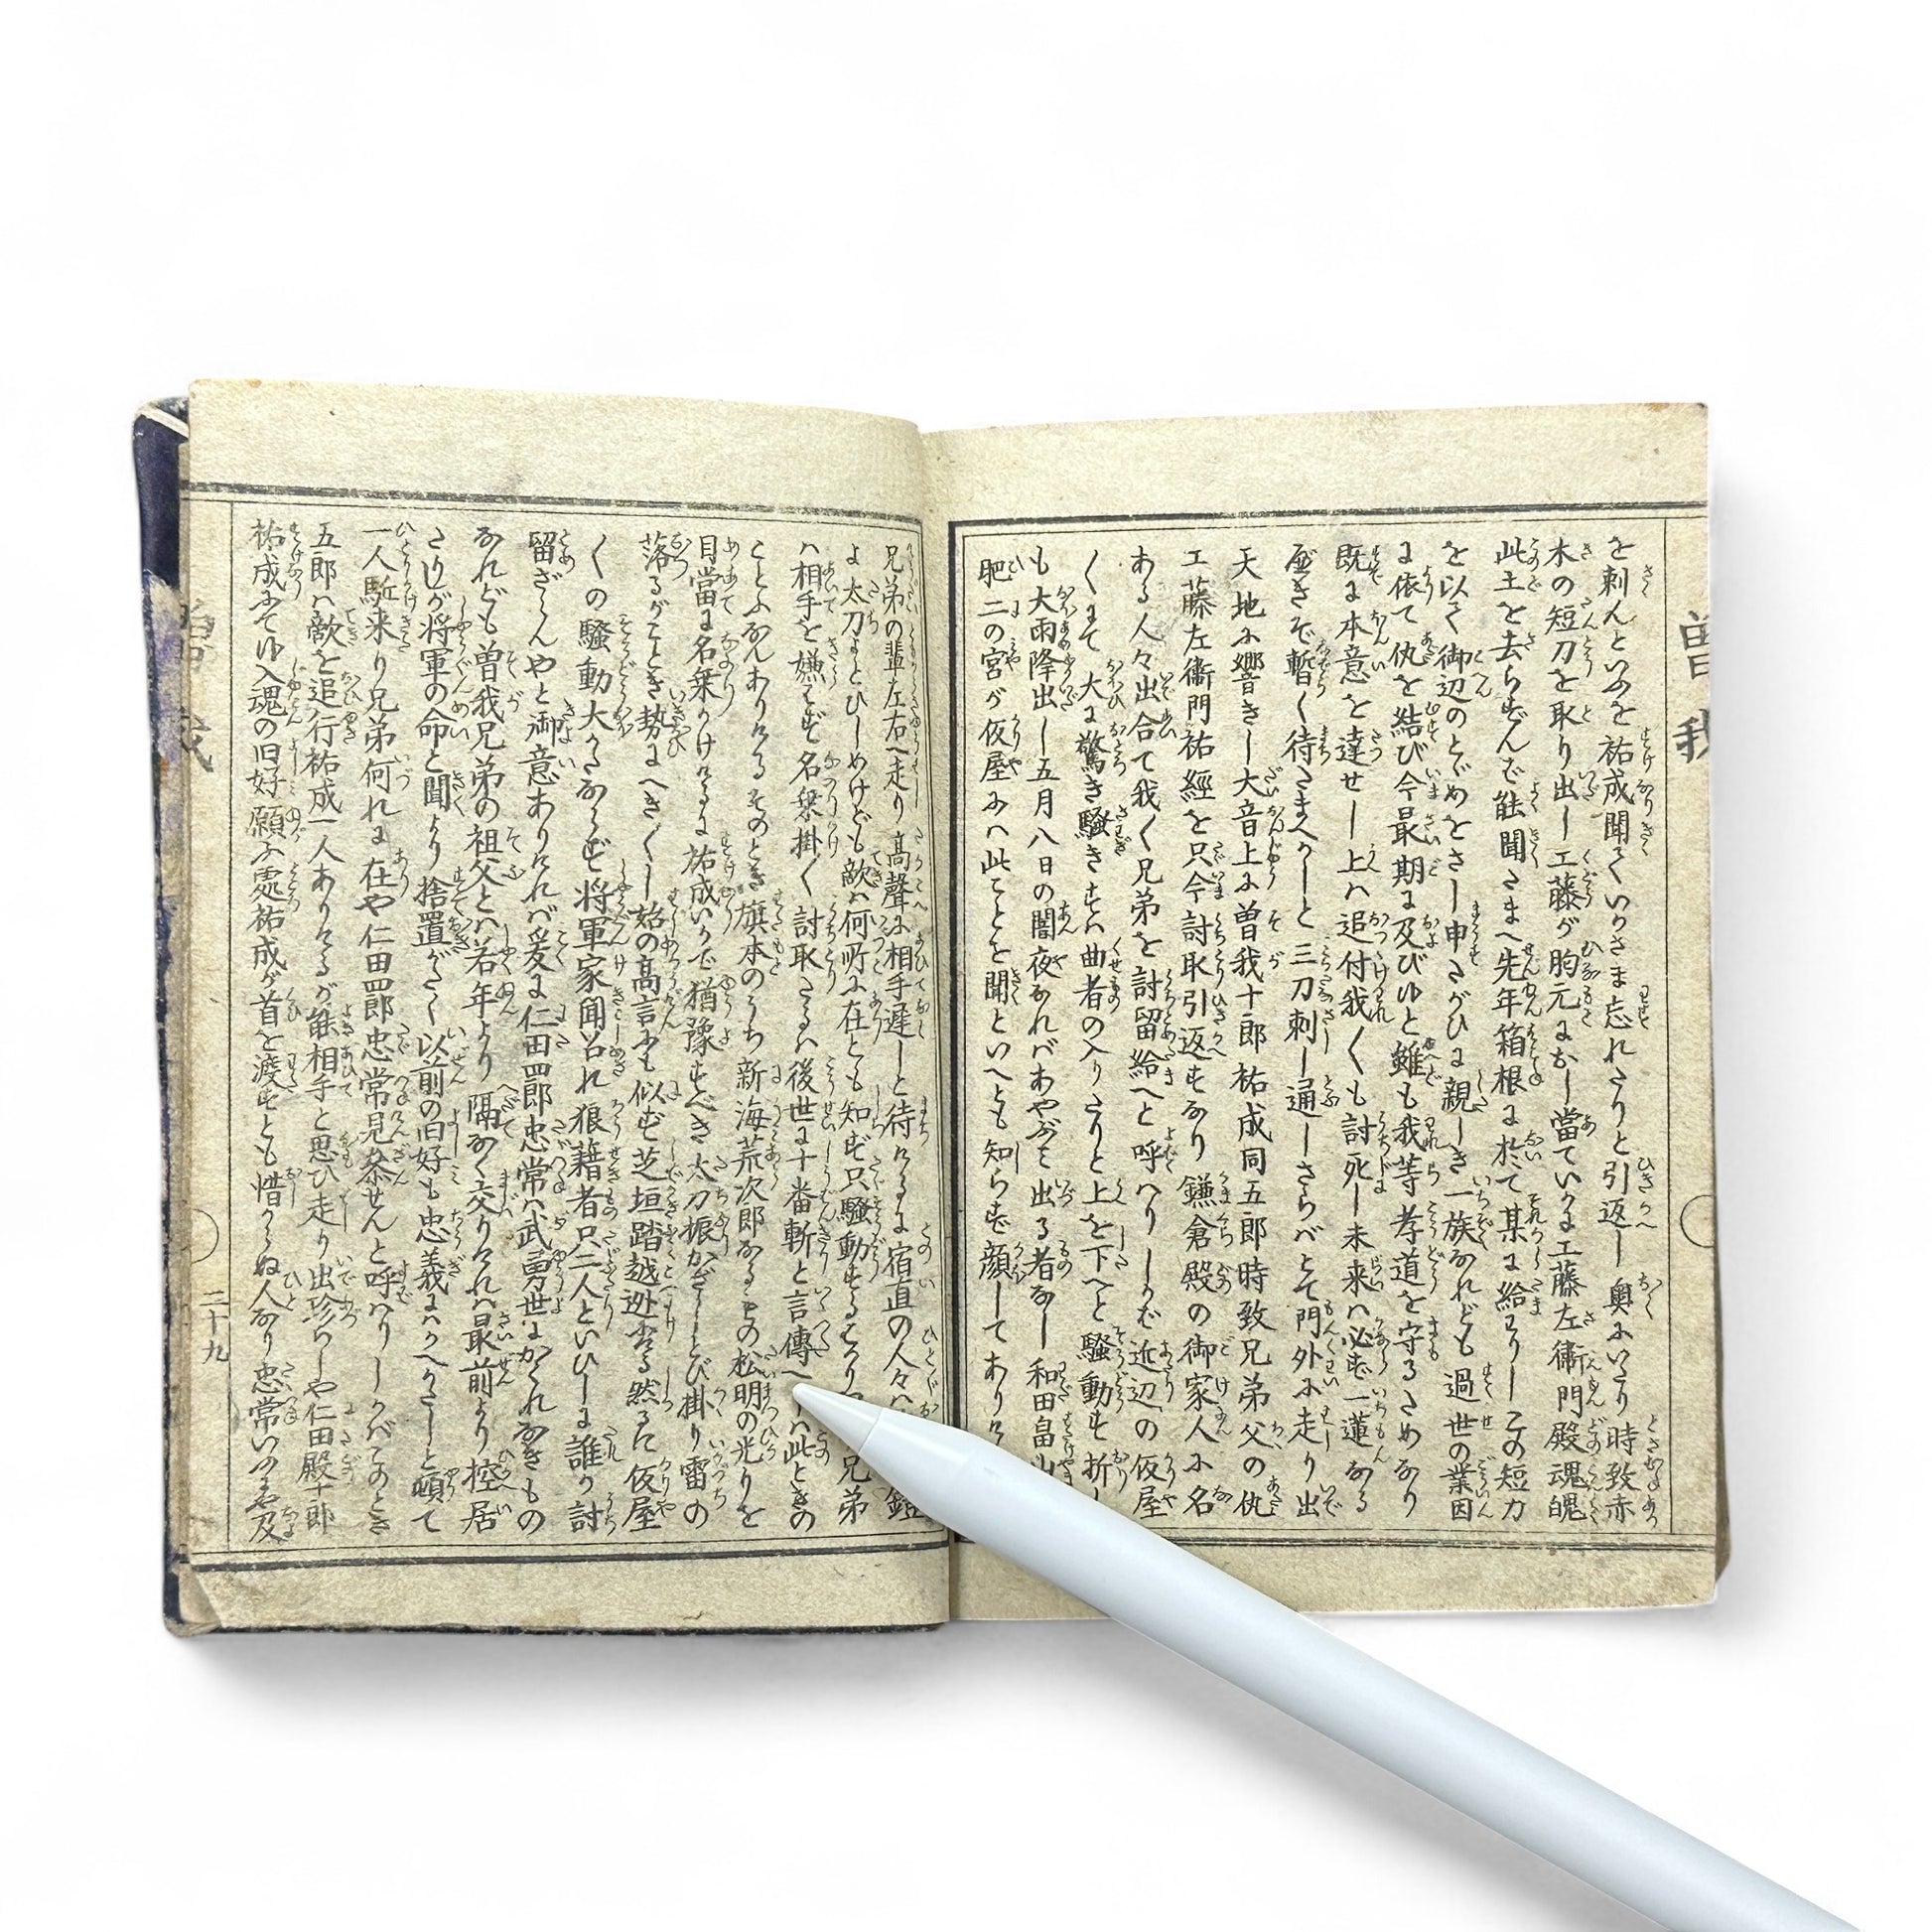 を刺んといふを祐成聞ていかさま忘れたりと引返し奥にいたり時致赤
木の短刀を取り出し工藤が胸元におし當ていかに工藤左衞門殿魂魄
此土を去らずんで能聞たまへ先年箱根に於て某に給わりしこの短刀
を以て御辺のとゞめをさし申たがひに親しき一族なれども過世の業因
に依て仇を結び今最期に及びゆと雖も我等孝道を守るためなり
既に本意を達せし上ハ追付我〱も討死し未来ハ必ず一蓮なる
べきぞ暫く待たまへかしと三刀刺し通しさらバとて門外に走り出
天地に響きし大音上に曽我十郎祐成同五郎時致兄弟父の仇
工藤左衞門祐經を只今討取引返すなり鎌倉殿の御家人に名
ある人々出合て我〱兄弟を討留給へと呼ハりしかバ近辺の仮屋
〱にて大に驚き騒きすハ曲者の入りたりと上を下へと騒動す折し
も大雨降出し五月八日の闇夜なれバあやぶミて出る者なし和田畠山
肥二の宮が仮屋にハ此ことを聞といへとも知らず顔してありけ
兄弟の輩左右へ走り高聲に相手遅しと待けるに宿直の人々ハ 鎧
よ太刀よとひしめけども敵ハ何所に在とも知ず只騒動するをり 兄弟
ハ相手を嫌ハず名乗掛〱討取たるハ後世に十番斬と言傳へ ハ此ときの
ことになんありけるそのとき旗本のうち新海荒次郎なるもの松明の光りを
目當に名乗かけけるに祐成いかで猶豫すべき太刀振かざしとび掛り雷の
落るがごとき勢にへき〱し始の高言にも似ず芝垣踏越迯出る然るに仮屋
〱の騒動大かたならず将軍家聞召れ狼藉者只二人といひしに誰か討
留ざらんやと御意ありけれバ爰に仁田四郎忠常ハ武勇世にかくれなきもの
なれども曽我兄弟の祖父とハ若年より隔なく交りけれハ最前より控居
たりしが将軍の命と聞より捨置がたく以前の旧好も忠義にハかへがたしと頓て
一人駈来り兄弟何れに在や仁田四郎忠常見参せんと呼ハりしかバこのとき
五郎ハ敵を追行祐成一人ありけるが能相手と思ひ走り出珍らしや仁田殿十郎
祐成にてゆ入魂の旧好願ふ處祐成が首を渡すとも惜からぬ人なり忠常いふにや及
曽我
二十九